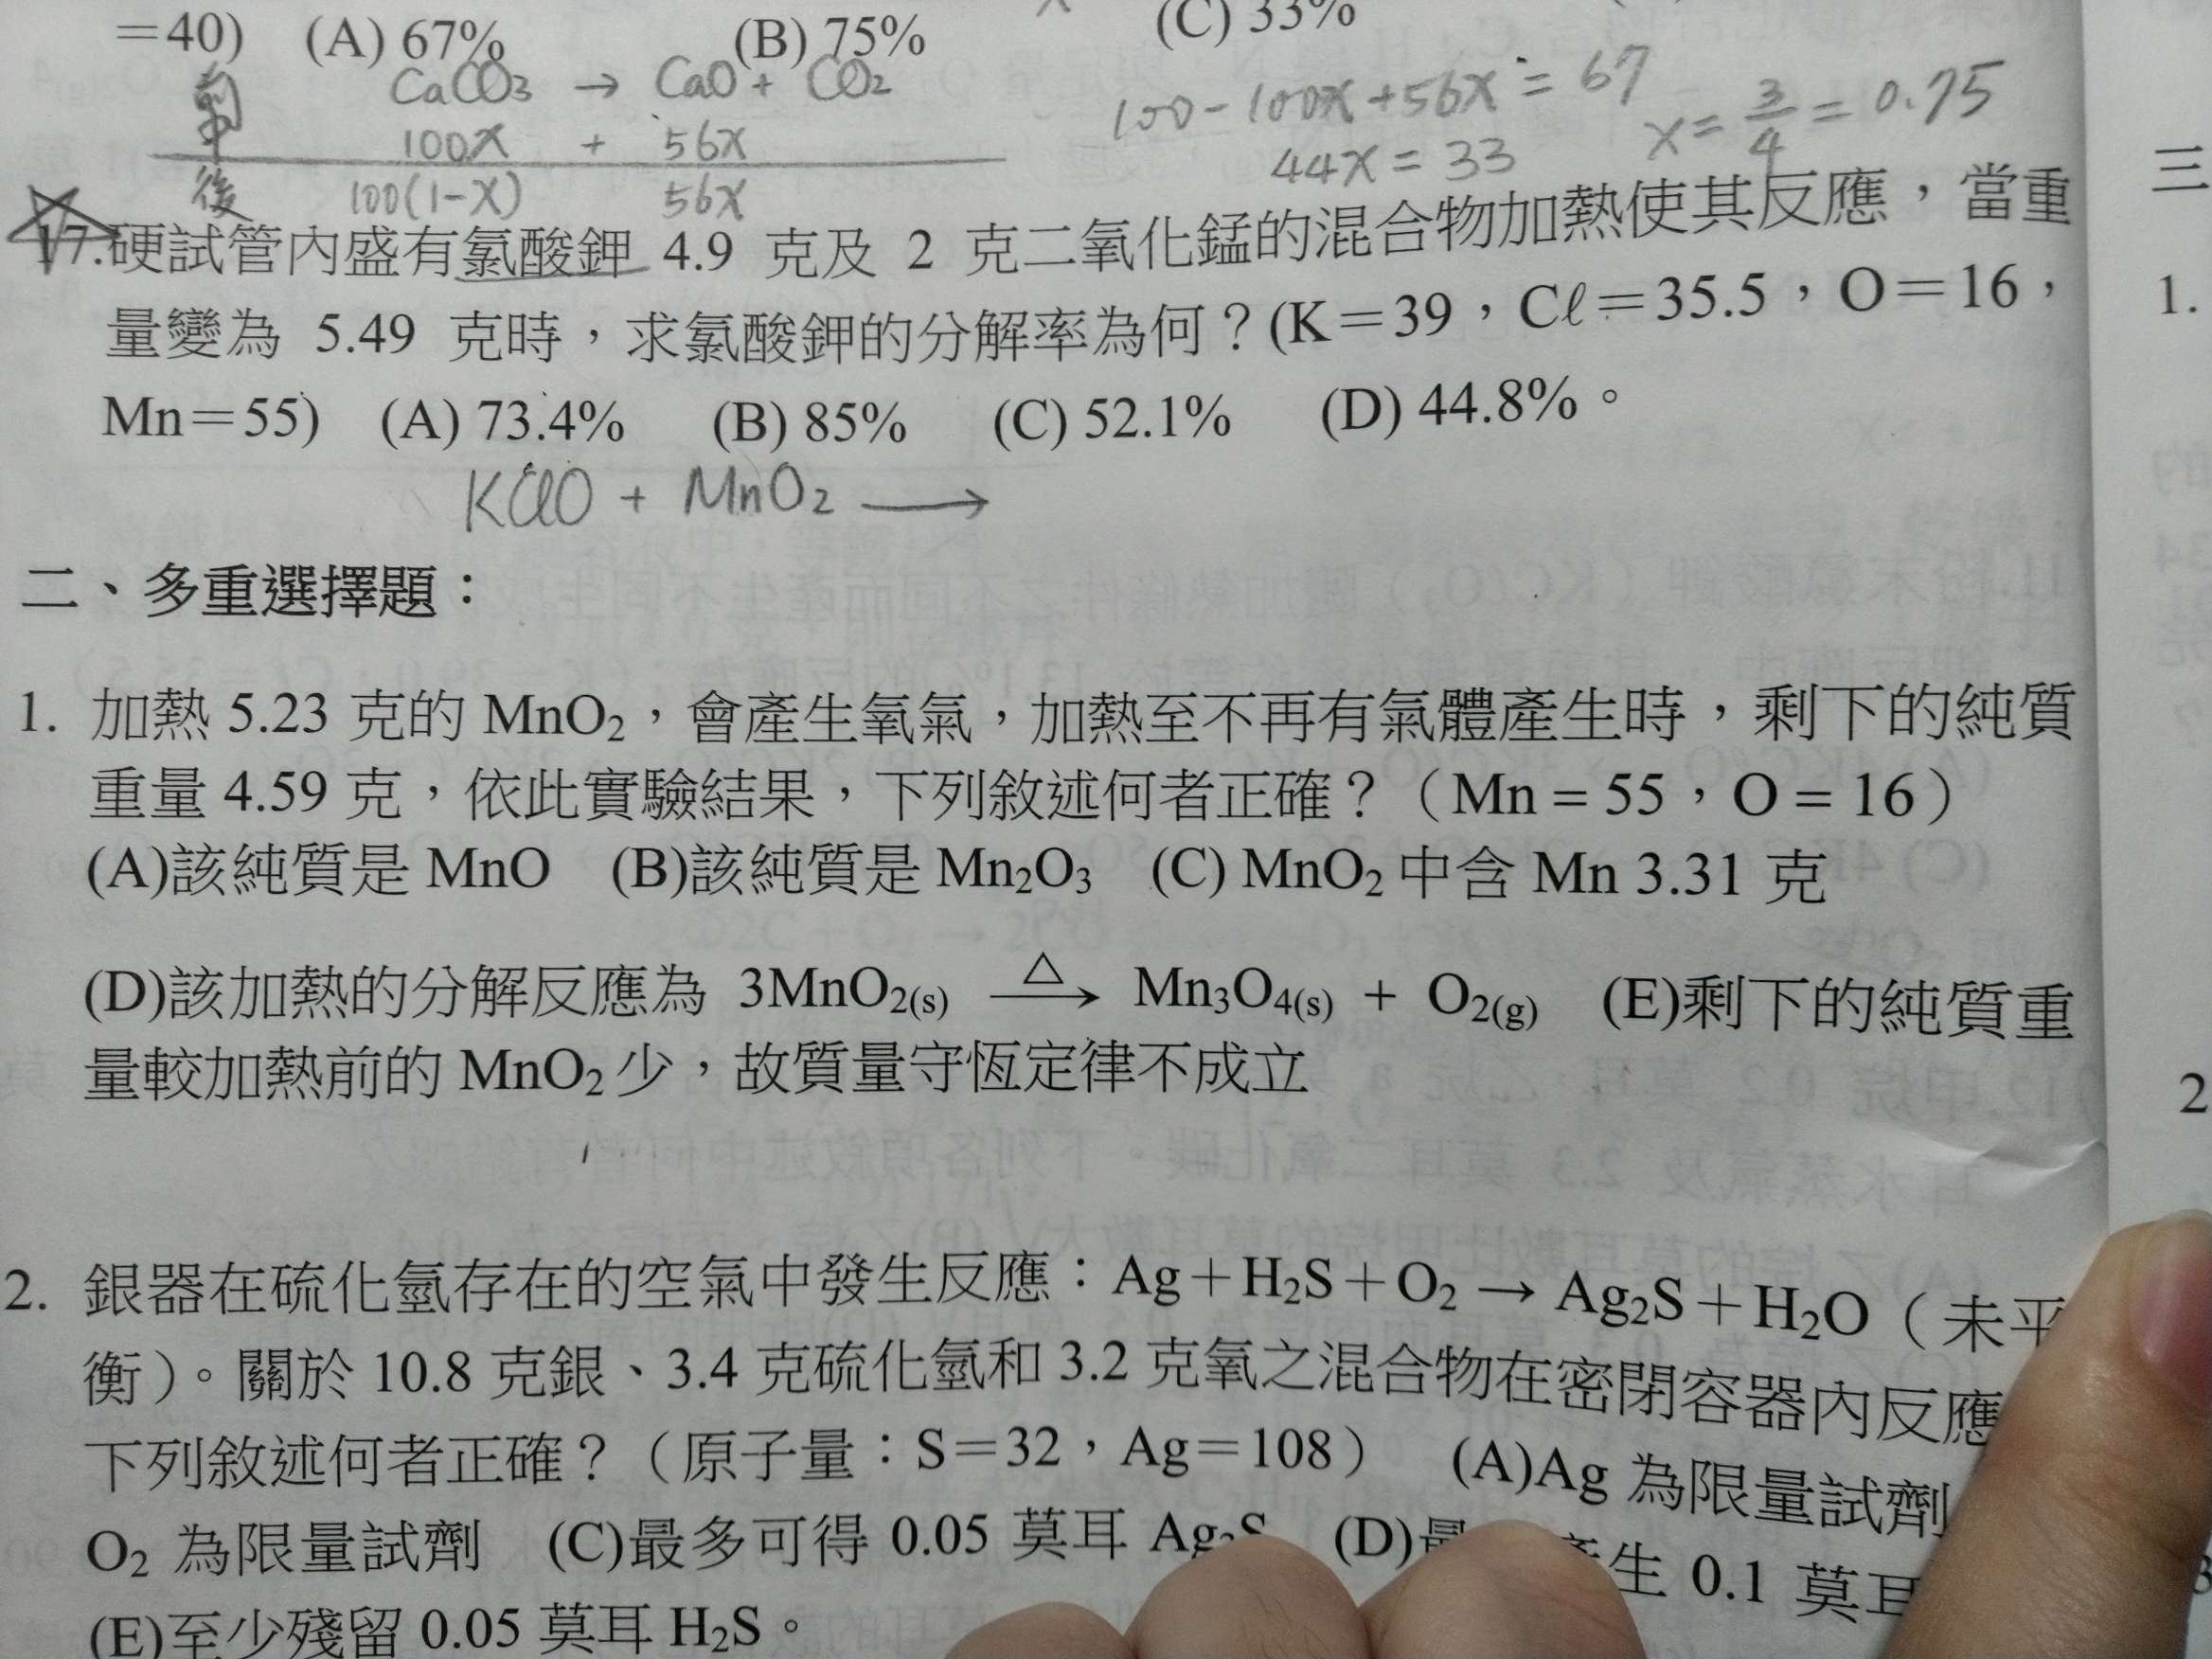 =40) (A) 67% (B) 75% (C) 33%
前 CaCO3 → CaO + CO2
100x + 56x
後 100(1-x) 56x
100-100x+56x = 67
44x = 33
x = 3/4 = 0.75
17.硬試管內盛有氯酸鉀 4.9 克及 2 克二氧化錳的混合物加熱使其反應，當重
量變為 5.49 克時，求氯酸鉀的分解率為何？(K＝39，Cℓ＝35.5，O＝16，
Mn＝55) (A) 73.4% (B) 85% (C) 52.1% (D) 44.8%。
KClO + MnO2 →
二、多重選擇題：
1. 加熱 5.23 克的 MnO₂，會產生氧氣，加熱至不再有氣體產生時，剩下的純質
重量 4.59 克，依此實驗結果，下列敘述何者正確？（Mn = 55，O = 16）
(A)該純質是 MnO (B)該純質是 Mn₂O₃ (C) MnO₂ 中含 Mn 3.31 克
(D)該加熱的分解反應為 3MnO₂(s) △→ Mn₃O₄(s) + O₂(g) (E)剩下的純質重
量較加熱前的 MnO₂ 少，故質量守恆定律不成立
2. 銀器在硫化氫存在的空氣中發生反應：Ag＋H₂S＋O₂→Ag₂S＋H₂O（未平
衡）。關於 10.8 克銀、3.4 克硫化氫和 3.2 克氧之混合物在密閉容器內反應
下列敘述何者正確？（原子量：S＝32，Ag＝108） (A)Ag 為限量試劑
O₂ 為限量試劑 (C)最多可得 0.05 莫耳 Ag₂S (D)最 產生 0.1 莫耳
(E)至少殘留 0.05 莫耳 H₂S。
三
1.
2
3